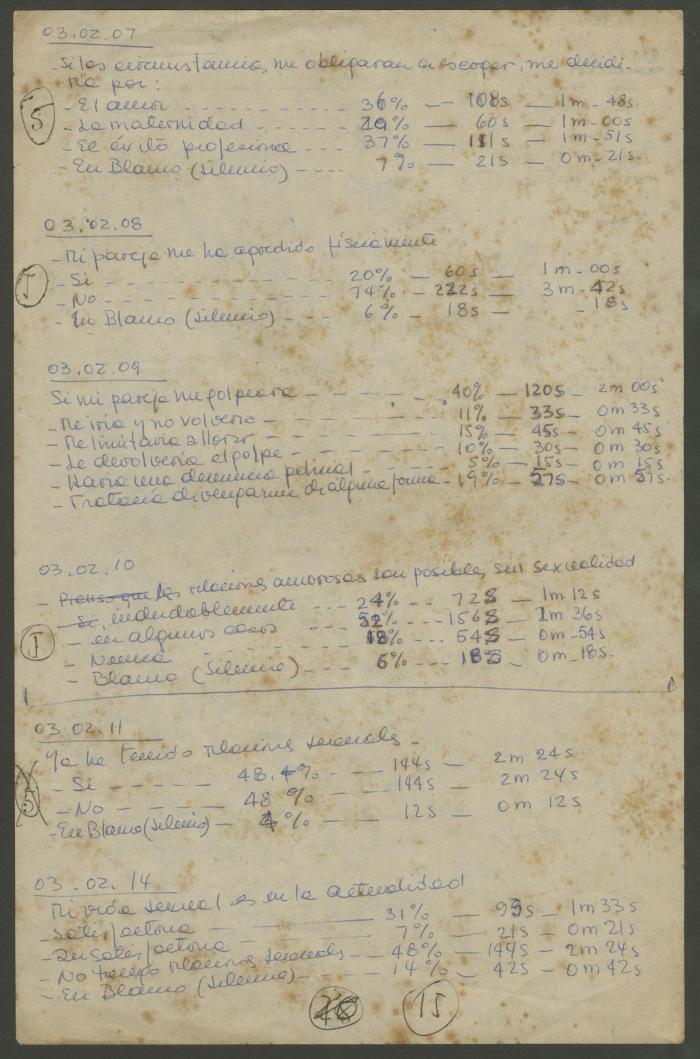 03.02.07
- Si las circunstancias me obligaran a escoger, me decidi-
ria por:
5
- El amor - - - - 36% — 108s — 1m - 48s
- La maternidad - - - - 20% — 60s — 1m - 00s
- El éxito profesional - - - 37% — 111s — 1m - 51s
- En Blanco (Silencio) - - - - 7% — 21s — 0m - 21s.
03.02.08
- Mi pareja me ha agredido físicamente
I
- Si - - - - 20% — 60s — 1m - 00s
- No - - - - 74% — 222s — 3m - 42s
- En Blanco (Silencio) - - - 6% — 18s — - 18s
03.02.09
Si mi pareja me golpeara - — 40% — 120s — 2m 00s
- Me iria y no volveria - — 11% — 33s — 0m 33s
- Me limitaria a llorar - — 15% — 45s — 0m 45s
- Le devolveria el golpe - — 10% — 30s — 0m 30s
- Haria una denuncia policial - 5% — 15s — 0m 15s
- Trataria de vengarme de alguna forma - 19% — 57s - 0m 57s.
03.02.10
- Pienso que las relaciones amorosas son posibles sin sexualidad
- Si, indudablemente - - - 24% — 72s — 1m 12s
I
- en algunos casos - - - 52% --- 156s — 1m 36s
- Nunca - - - 18% --- 54s — 0m - 54s
- Blanco (Silencio) - - - 6% --- 18s — 0m - 18s.
03.02.11
Ya ha tenido relaciones sexuales -
- Si - - - - 48.4% - — 144s — 2m 24s
- No - - - — 48 % — 144s — 2m 24s
- En Blanco (Silencio) - 4 % — 12s — 0m 12s
03.02.14
Mi vida sexual es en la actualidad
Satisfactoria — 31% — 93s — 1m 33s
- Insatisfactoria — 7% — 21s — 0m 21s
- No tengo relaciones sexuales — 48% — 144s — 2m 24s
- En Blanco (Silencio) - 14% — 42s — 0m 42s
15